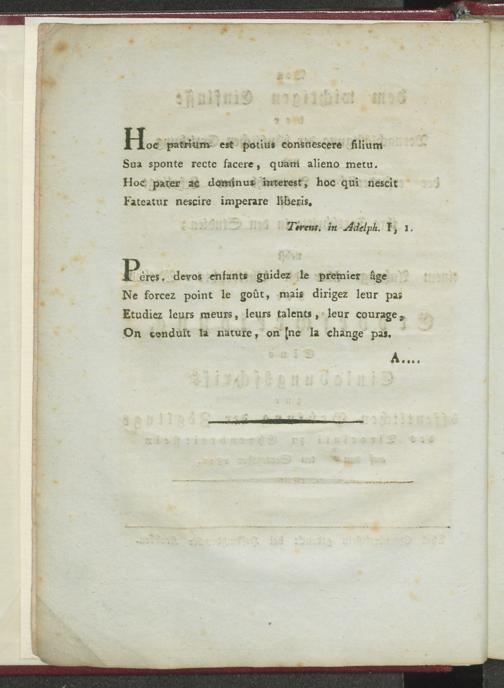 Hoc patrium est potius consuescere filium
Sua sponte recte facere, quam alieno metu.
Hoc pater ac dominus interest, hoc qui nescit
Fateatur nescire imperare liberis.
Terent. in Adelph. I, 1.
Pères. devos enfants guidez le premier âge
Ne forcez point le goût, mais dirigez leur pas
Etudiez leurs meurs, leurs talents, leur courage,
On conduit la nature, on ne la change pas.
A....